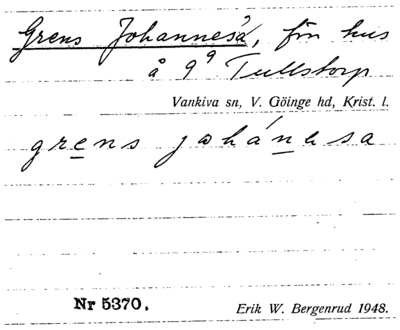 Grens Johannesa, f̶ö̶r̶ hus
å 9⁹ Tullstorp
Vankiva sn, V. Göinge hd, Krist. l.
grens johánesa
Nr 5370.
Erik W. Bergenrud 1948.